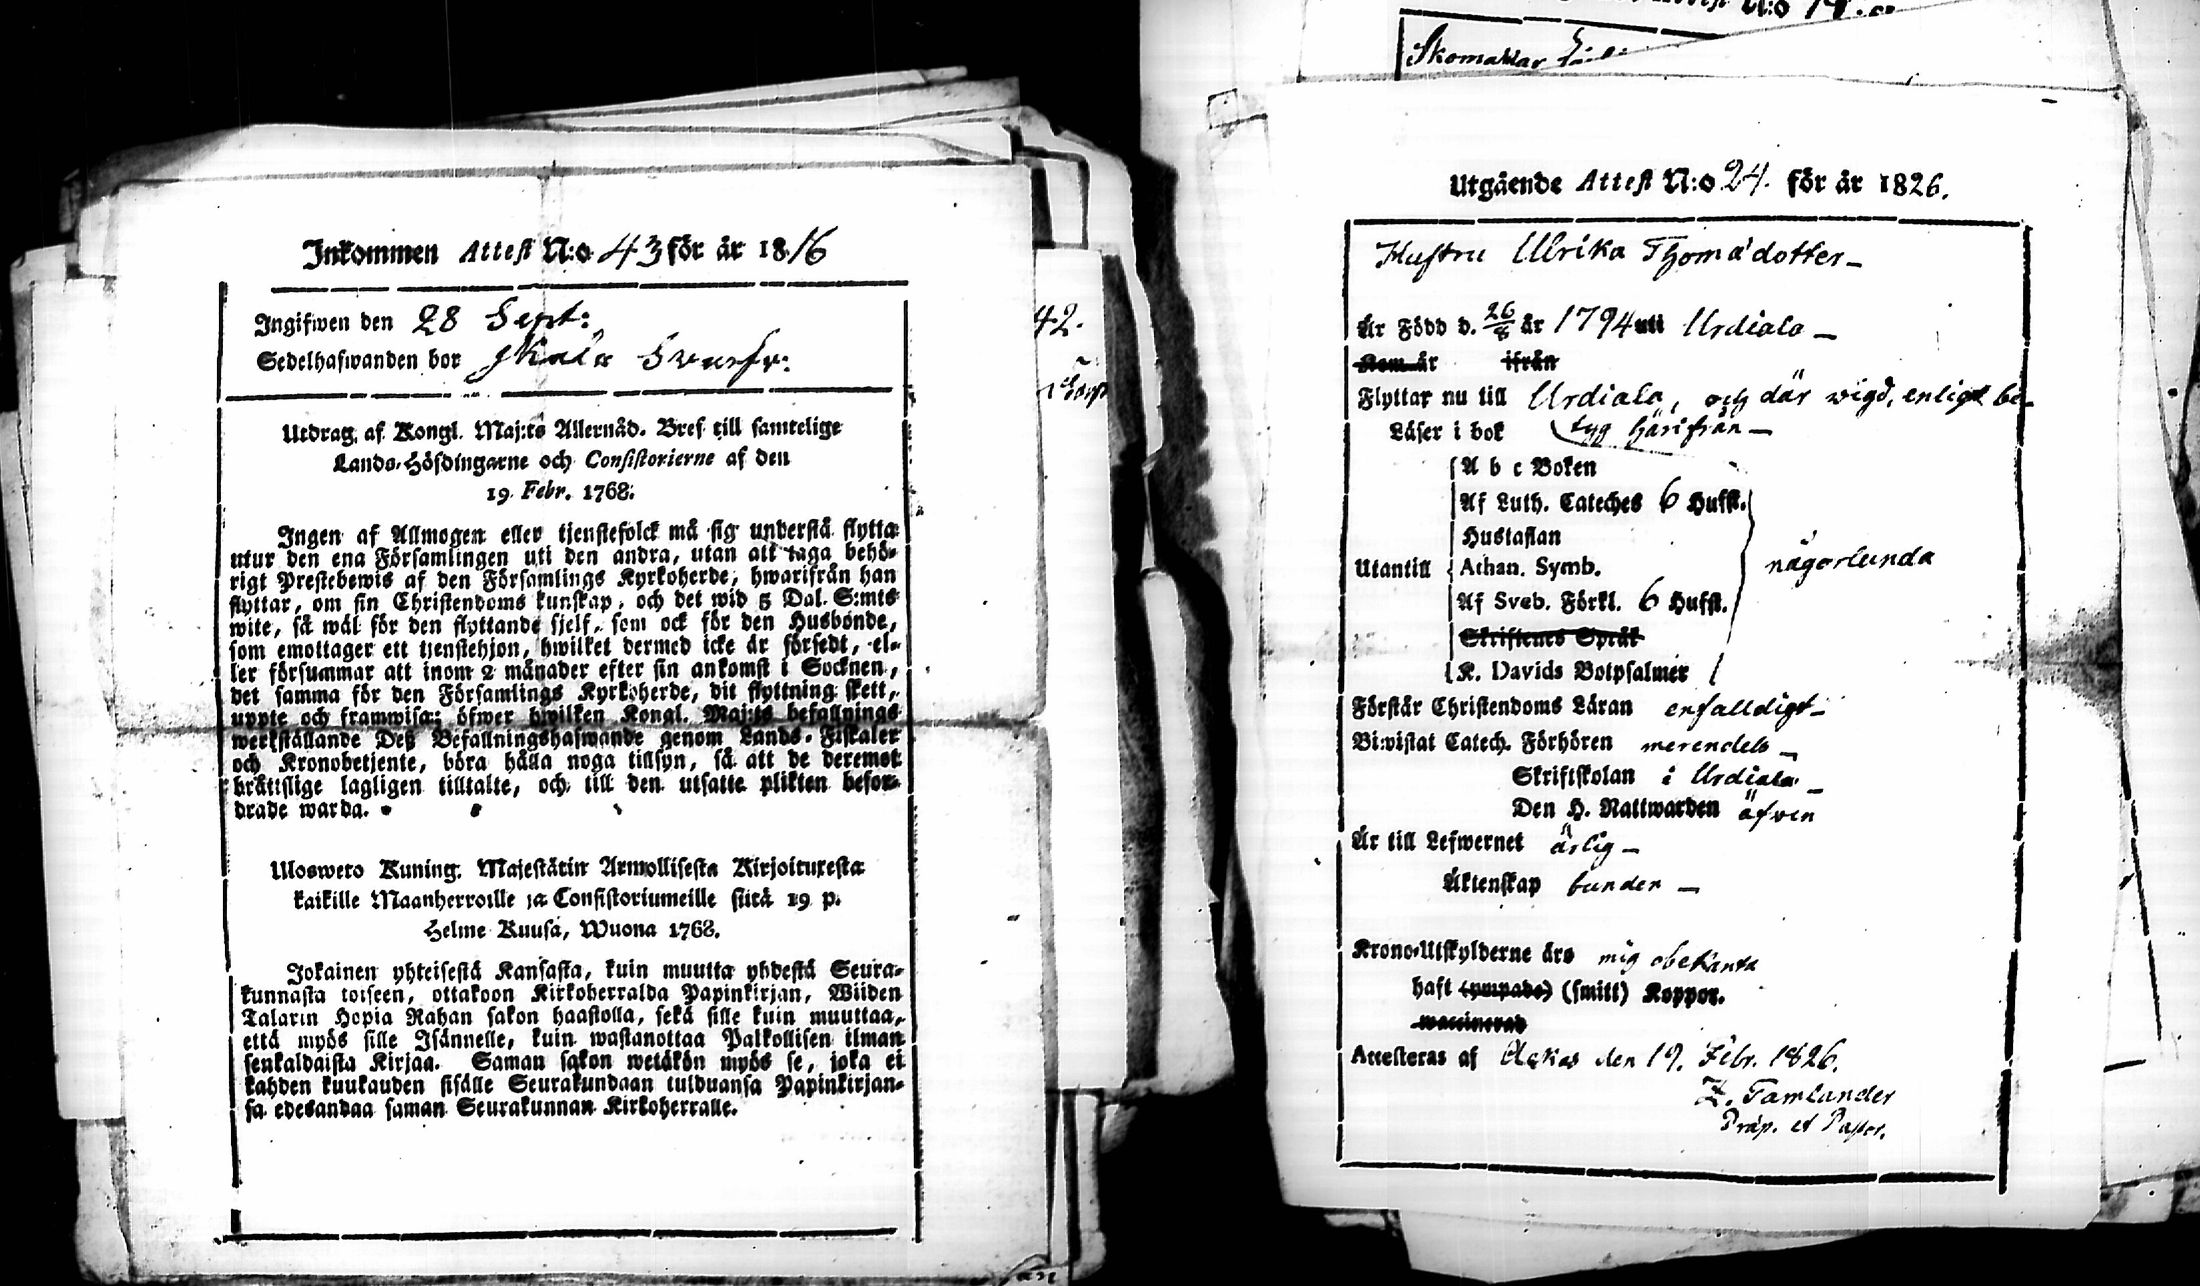 Inkommen Attest N:o 43 för år 1816
Ingifwen den 28 Sept:
Sedelhafwanden bor
Utdrag af Kongl. Maj:ts Allernåd. Bref till samtelige
Lands-Höfdingarne och Consistorierne af den
19 Febr. 1768.
Ingen af Allmogen eller tjenstefolck må sig understå flytta
utur den ena Församlingen uti den andra, utan att taga behö-
rigt Prestebewis af den Församlings Kyrkoherde, hwarifrån han
flyttar, om sin Christendoms kunskap, och det wid 5 Dal. S:mts
wite, så wäl för den flyttande sjelf, som ock för den Husbonde,
som emottager ett tjenstehjon, hwilket dermed icke är försedt, el-
ler försummar att inom 2 månader efter sin ankomst i Socknen,
det samma för den Församlings Kyrkoherde, dit flyttning skett,
uppte och framwisa; öfwer hwilken Kongl. Maj:ts befallnings
werkställande Deß Befallningshafwande genom Lands-Fiskaler
och Kronobetjente, böra hålla noga tillsyn, så att de deremot
bråttslige lagligen tilltalte, och till den utsatte plikten befor-
drade warda.
Ulosweto Kuning. Majestätin Armollisesta Kirjoituresta
kaikille Maanherroille ja Consistoriumeille siitä 19 p.
Helme Kuusa, Wuona 1768.
Jokainen yhteisestä Kansasta, kuin muutta yhdestä Seura-
kunnasta toiseen, ottakoon Kirkoherralda Papinkirjan, Wiiden
Talarin Hopia Rahan sakon haastolla, sekä sille kuin muuttaa,
että myös sille Isännelle, kuin wastanottaa Palkollisen ilman
senkaldaista Kirjaa. Saman sakon wetäkön myös se, joka ei
kahden kuukauden sisälle Seurakundaan tulduansa Papinkirjan-
sa edesandaa saman Seurakunnan Kirkoherralle.
42.
Skomakar
Utgående Attest N:o 24. för år 1826.
Hustru Ulrika Thomädotter
Är Född d. 26/8 år 1794 uti Urdiala
Kom år ifrån
Flyttar nu till Urdiala, och där wigd, enligt be-
Läser i bok tyg härifrån
A b c Boken
Af Luth. Cateches 6 Hufst.
Hustaflan
Utantill Athan. Symb. någorlunda
Af Sveb. Förkl. 6 Hufst.
Skriftenes Språk
K. Davids Botpsalmer
Förstår Christendoms Läran enfalldigt
Biwistat Catech. Förhören merendels
Skriftskolan i Urdiala
Den H. Nattwarden äfwen
Är till Lefwernet ärlig
Äktenskap bunden
Krono-Utskylderne äro mig obekanta
haft (ympade) (smitt) Koppor.
waccinerad
Attesteras af Ackas den 19. Febr. 1826.
Z. Tamlander
Präp. et Pastor.